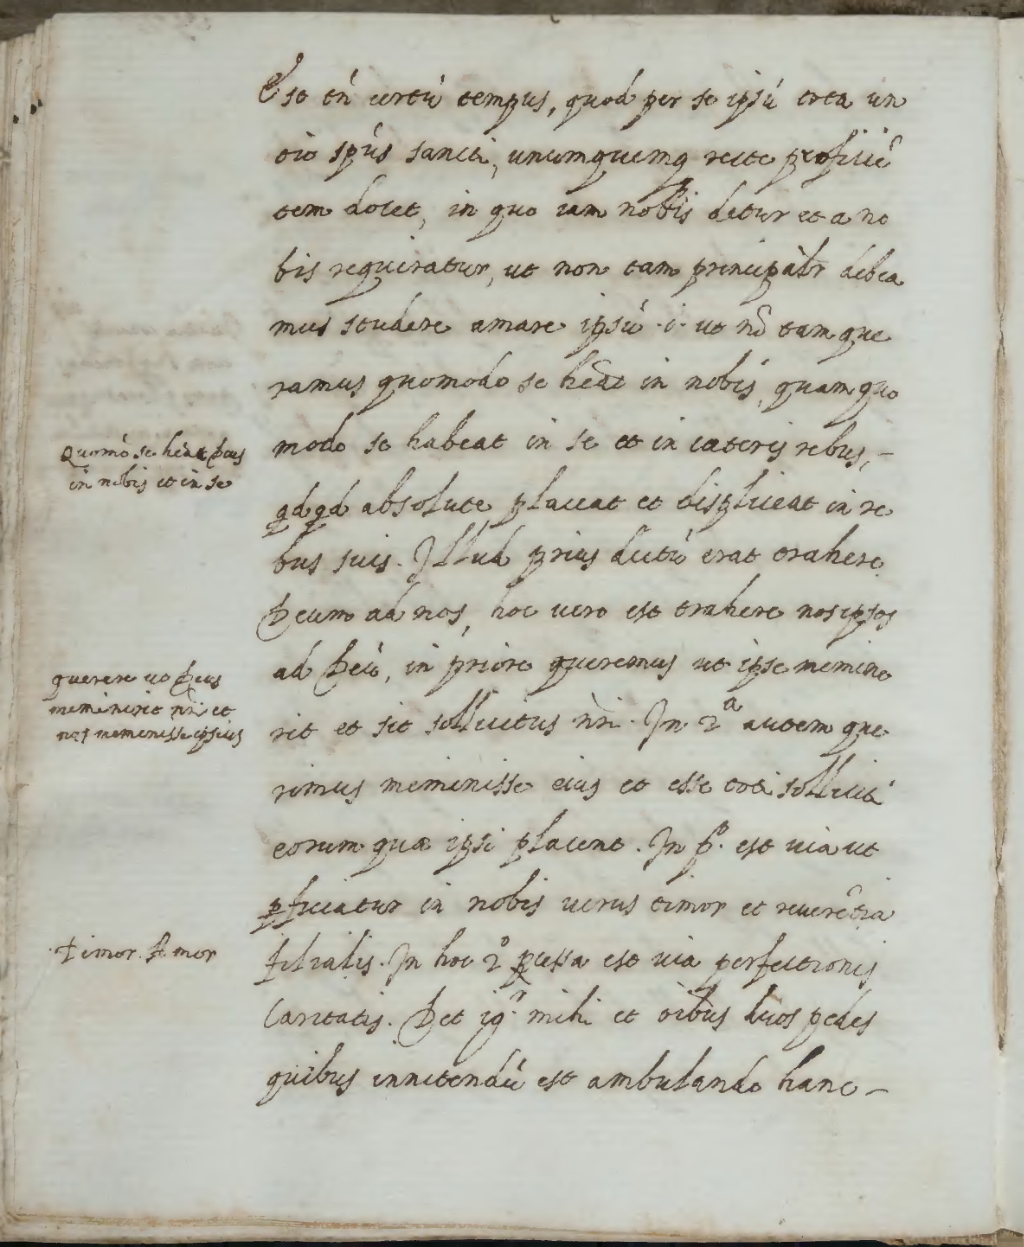 Est tñ certũ tempus, quod per se ipsũ tota un
tio spũs sancti, unumquemq recte proficiẽ
tem docet, in quo iam nobis detur et a no
bis requiratur, ut non tam principalr debea
mus studere amare ipsũ .i. ut nõ tam que
ramus quomodo se hẽat in nobis, quam quo
modo se habeat in se et in cæteris rebus, –
qdqd absolute placeat et displiceat in re
bus suis. Illud prius dictũ erat trahere
Deum ad nos, hoc uero est trahere nos ipsos
ad Deũ, in priore queremus ut ipse memine
rit et sit sollicitus nñi. In 2ᵃ autem que
rimus meminisse eius et esse toti solliciti
eorum quæ ipsi placent. In pᵒ. est uia ut
pficiatur in nobis uerus timor et reuerẽtia
filialis. In hoc 2ᵒ pcessa est uia perfectionis
Caritatis. Det igʳ. mihi et oĩbus duos pedes
quibus innitendũ est ambulando hanc –
Quomõ se hẽat Deus
in nobis et in se
querere ut Deus
meminerit nñi et
nos meminisse ipsius
Timor. Amor